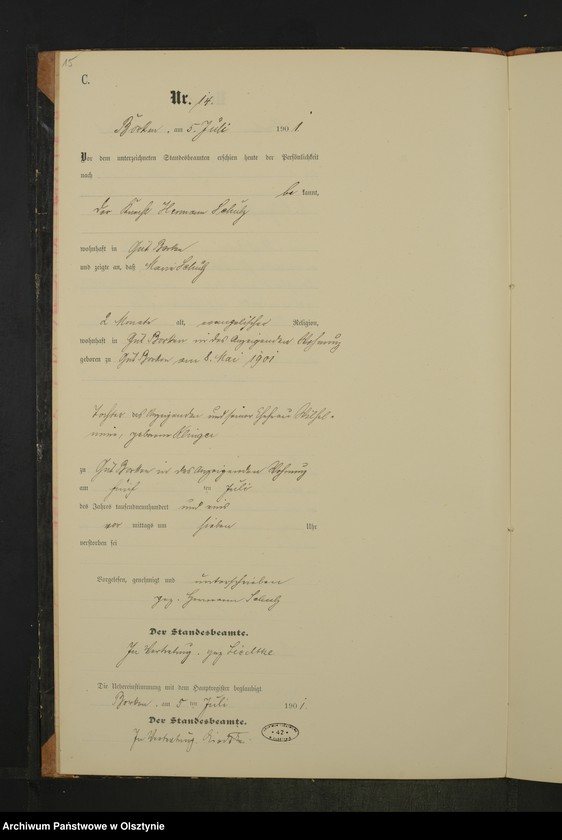 15
C.
Nr. 14.
Borken, am 5. Juli 1901
Vor dem unterzeichneten Standesbeamten erschien heute der Persönlichkeit
nach
be kannt,
der Knecht Hermann Schulz
wohnhaft in Gut Borken
und zeigte an, daß Marie Schulz
2 Monate alt, evangelischer Religion,
wohnhaft in Gut Borken in des Anzeigenden Wohnung
geboren zu Gut Borken am 8. Mai 1901
Tochter des Anzeigenden und seiner Ehefrau Wilhel-
mine, geborene Klinger
zu Gut Borken in des Anzeigenden Wohnung
am fünf ten Juli
des Jahres tausendneunhundert und eins
vor mittags um sieben Uhr
verstorben sei
Vorgelesen, genehmigt und unterschrieben
gez. Hermann Schulz
Der Standesbeamte.
In Vertretung. gez Liedtke
Die Uebereinstimmung mit dem Hauptregister beglaubigt.
Borken, am 5 ten Juli 1901.
Der Standesbeamte.
In Vertretung. Liedtke
* 42 *
Archiwum Państwowe w Olsztynie